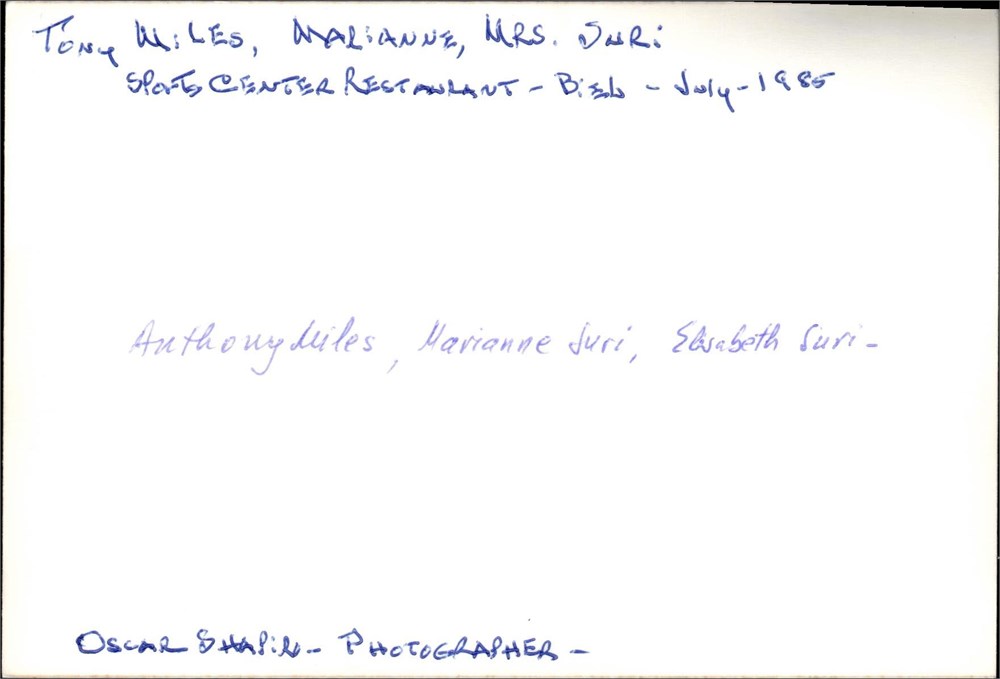 Tony MiLES, MARiANNE, MRS. SURi
SPORTS CENTER RESTAURANT - BiEL - July - 1985
Anthony Miles, Marianne Suri, Elisabeth Suri -
OSCAR SHAPiRO - PHOTOGRAPHER -